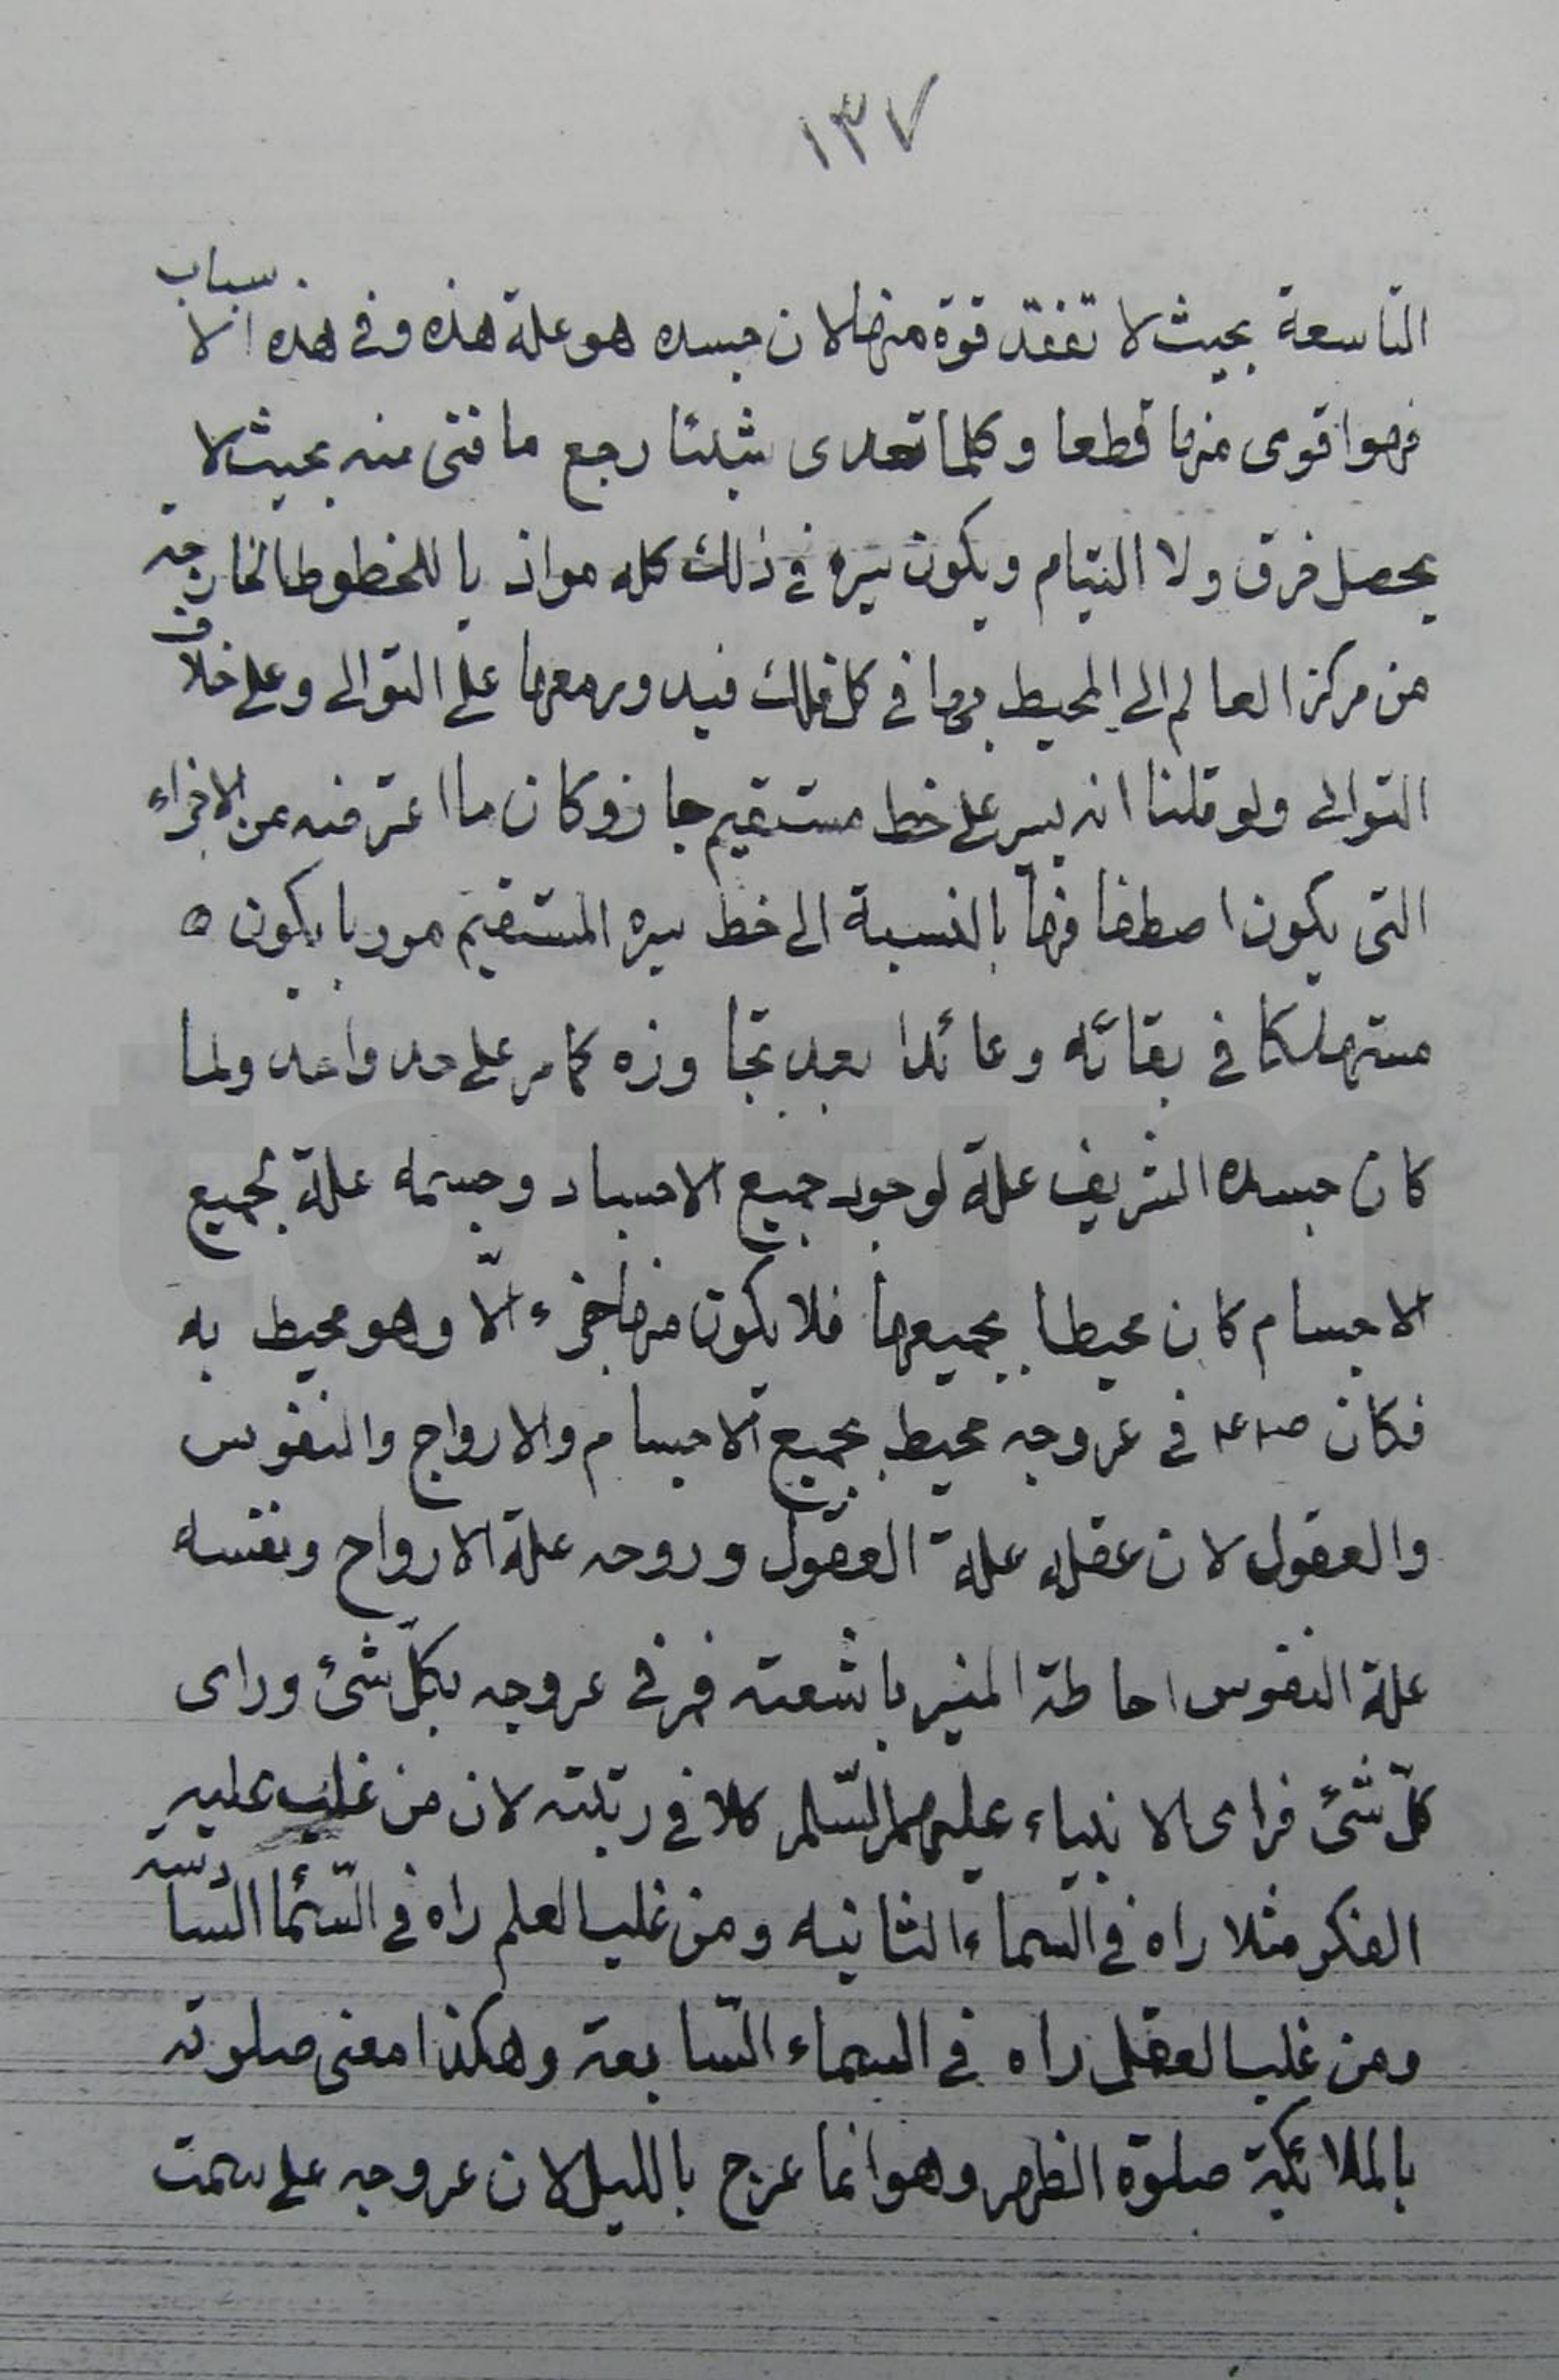 ١٣٧
التاسعة بحيث لا تفقد قوة منها لان جسده هو علة هذه وفى هذه الاسباب
فهو اقوى منها قطعا وكلما تعدى شيئا رجع ما فنى منه بحيث لا
يحصل فرق ولا التيام ويكون سيره فى ذلك كله موازيا للخطوط الخارجة
من مركز العالم الى المحيط بها فى كل فلك فيدور معها على التوالى وعلى خلاف
التوالى ولو قلنا انه يسير على خط مستقيم جاز وكان ما اعترضه من الاجزاء
التى يكون اصطفافها بالنسبة الى خط سيره المستقيم موربا يكون ٥
مستهلكا فى بقائه وعائدا بعد تجاوزه كما مر على حد واحد ولما
كان جسده الشريف علة لوجود جميع الاجساد وجسمه علة لجميع
الاجسام كان محيطا بجميعها فلا يكون منها جزء الّا وهو محيط به
فكان فى عروجه محيط بجميع الاجسام والارواح والنفوس
والعقول لان عقله علة العقول وروحه علة الارواح ونفسه
علة النفوس احاطة المنير باشعته فمر فى عروجه بكلّ شئ وراى
كلّ شئ فراى الانبياء عليهم السّلم كلا فى رتبته لان من غلب عليه
الفكر مثلا راه فى السماء الثانيه ومن غلب العلم راه فى السّماء السّادسة
ومن غلب العقل راه فى السماء السّابعة وهكذا معنى صلوته
بالملائكة صلوة الظهر وهو انما عرج بالليل لان عروجه على سمت